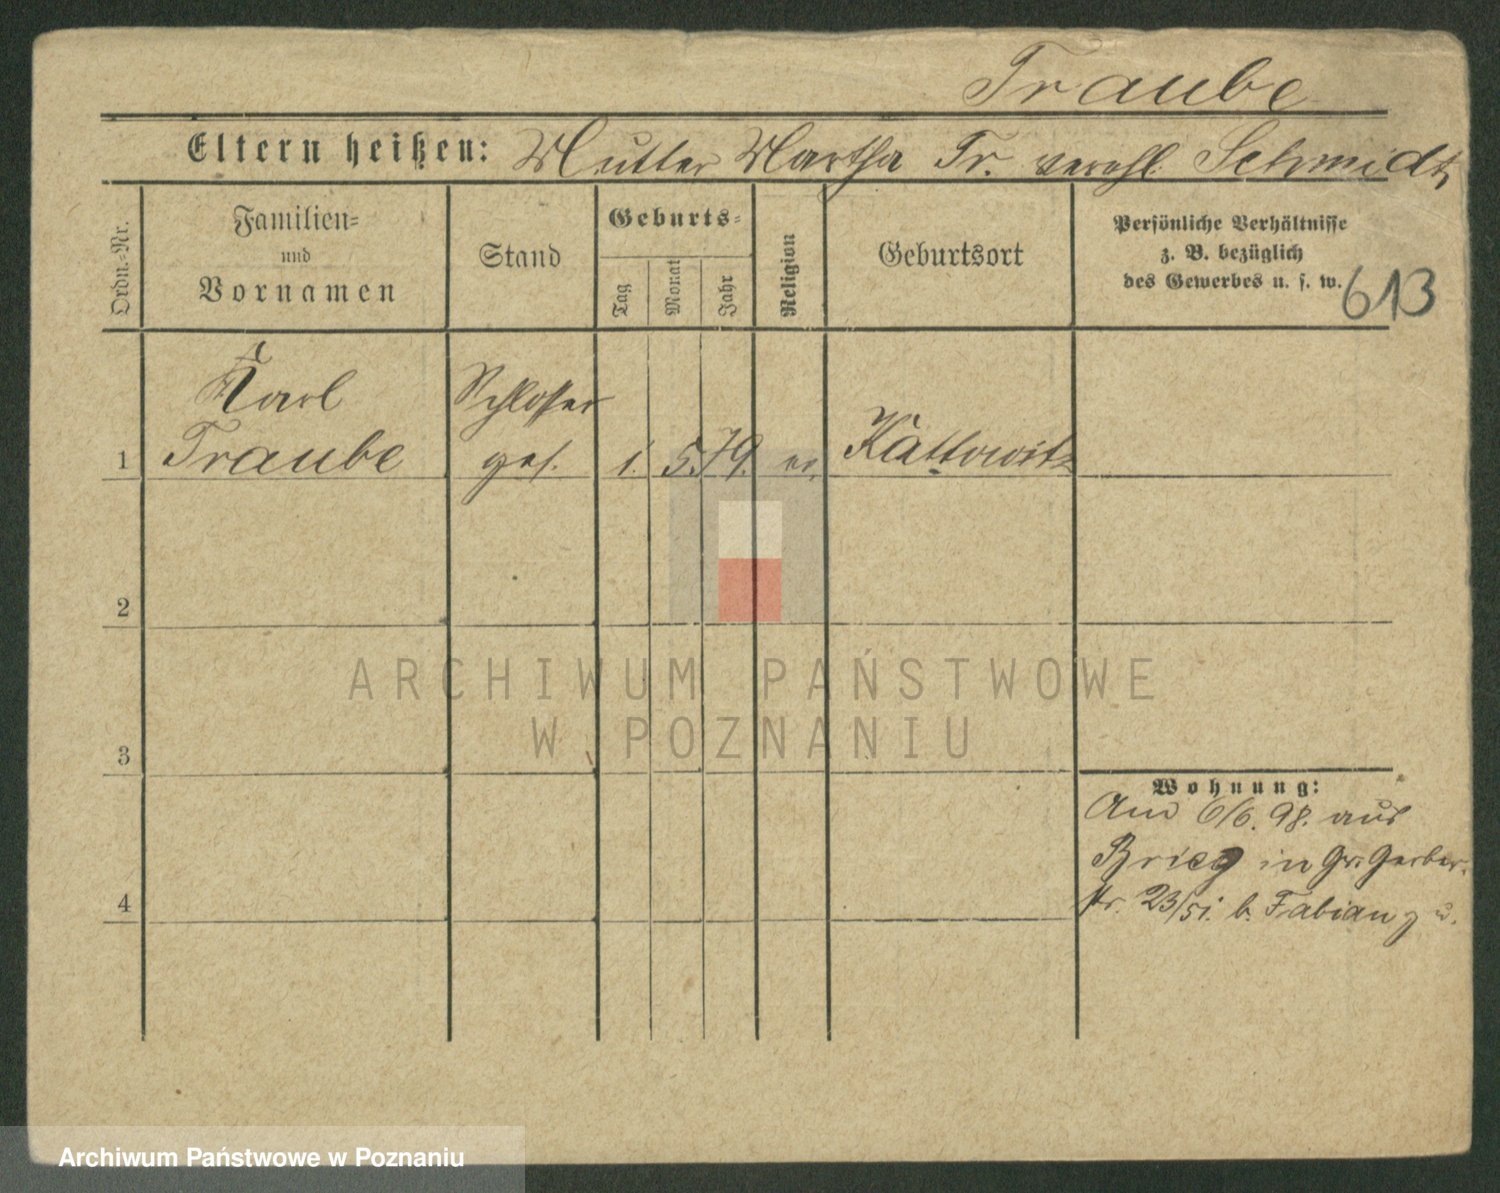 Traube
Eltern heißen: Mutter Martha Tr. verehl. Schmidt,
Ordn.-Nr.
Familien-
und
Vornamen
Stand
Geburts-
Tag
Monat
Jahr
Religion
Geburtsort
Persönliche Verhältnisse
z. B. bezüglich
des Gewerbes u. s. w.
613
Karl
Traube
Schlosser
ges.
1
1. 5. 79. ev.
Kattowitz
2
ARCHIWUM PAŃSTWOWE
W POZNANIU
3
Wohnung:
Am 6/6. 98. aus
Brieg in Gr. Gerber-
str. 23/51. b. Fabian
4
Archiwum Państwowe w Poznaniu